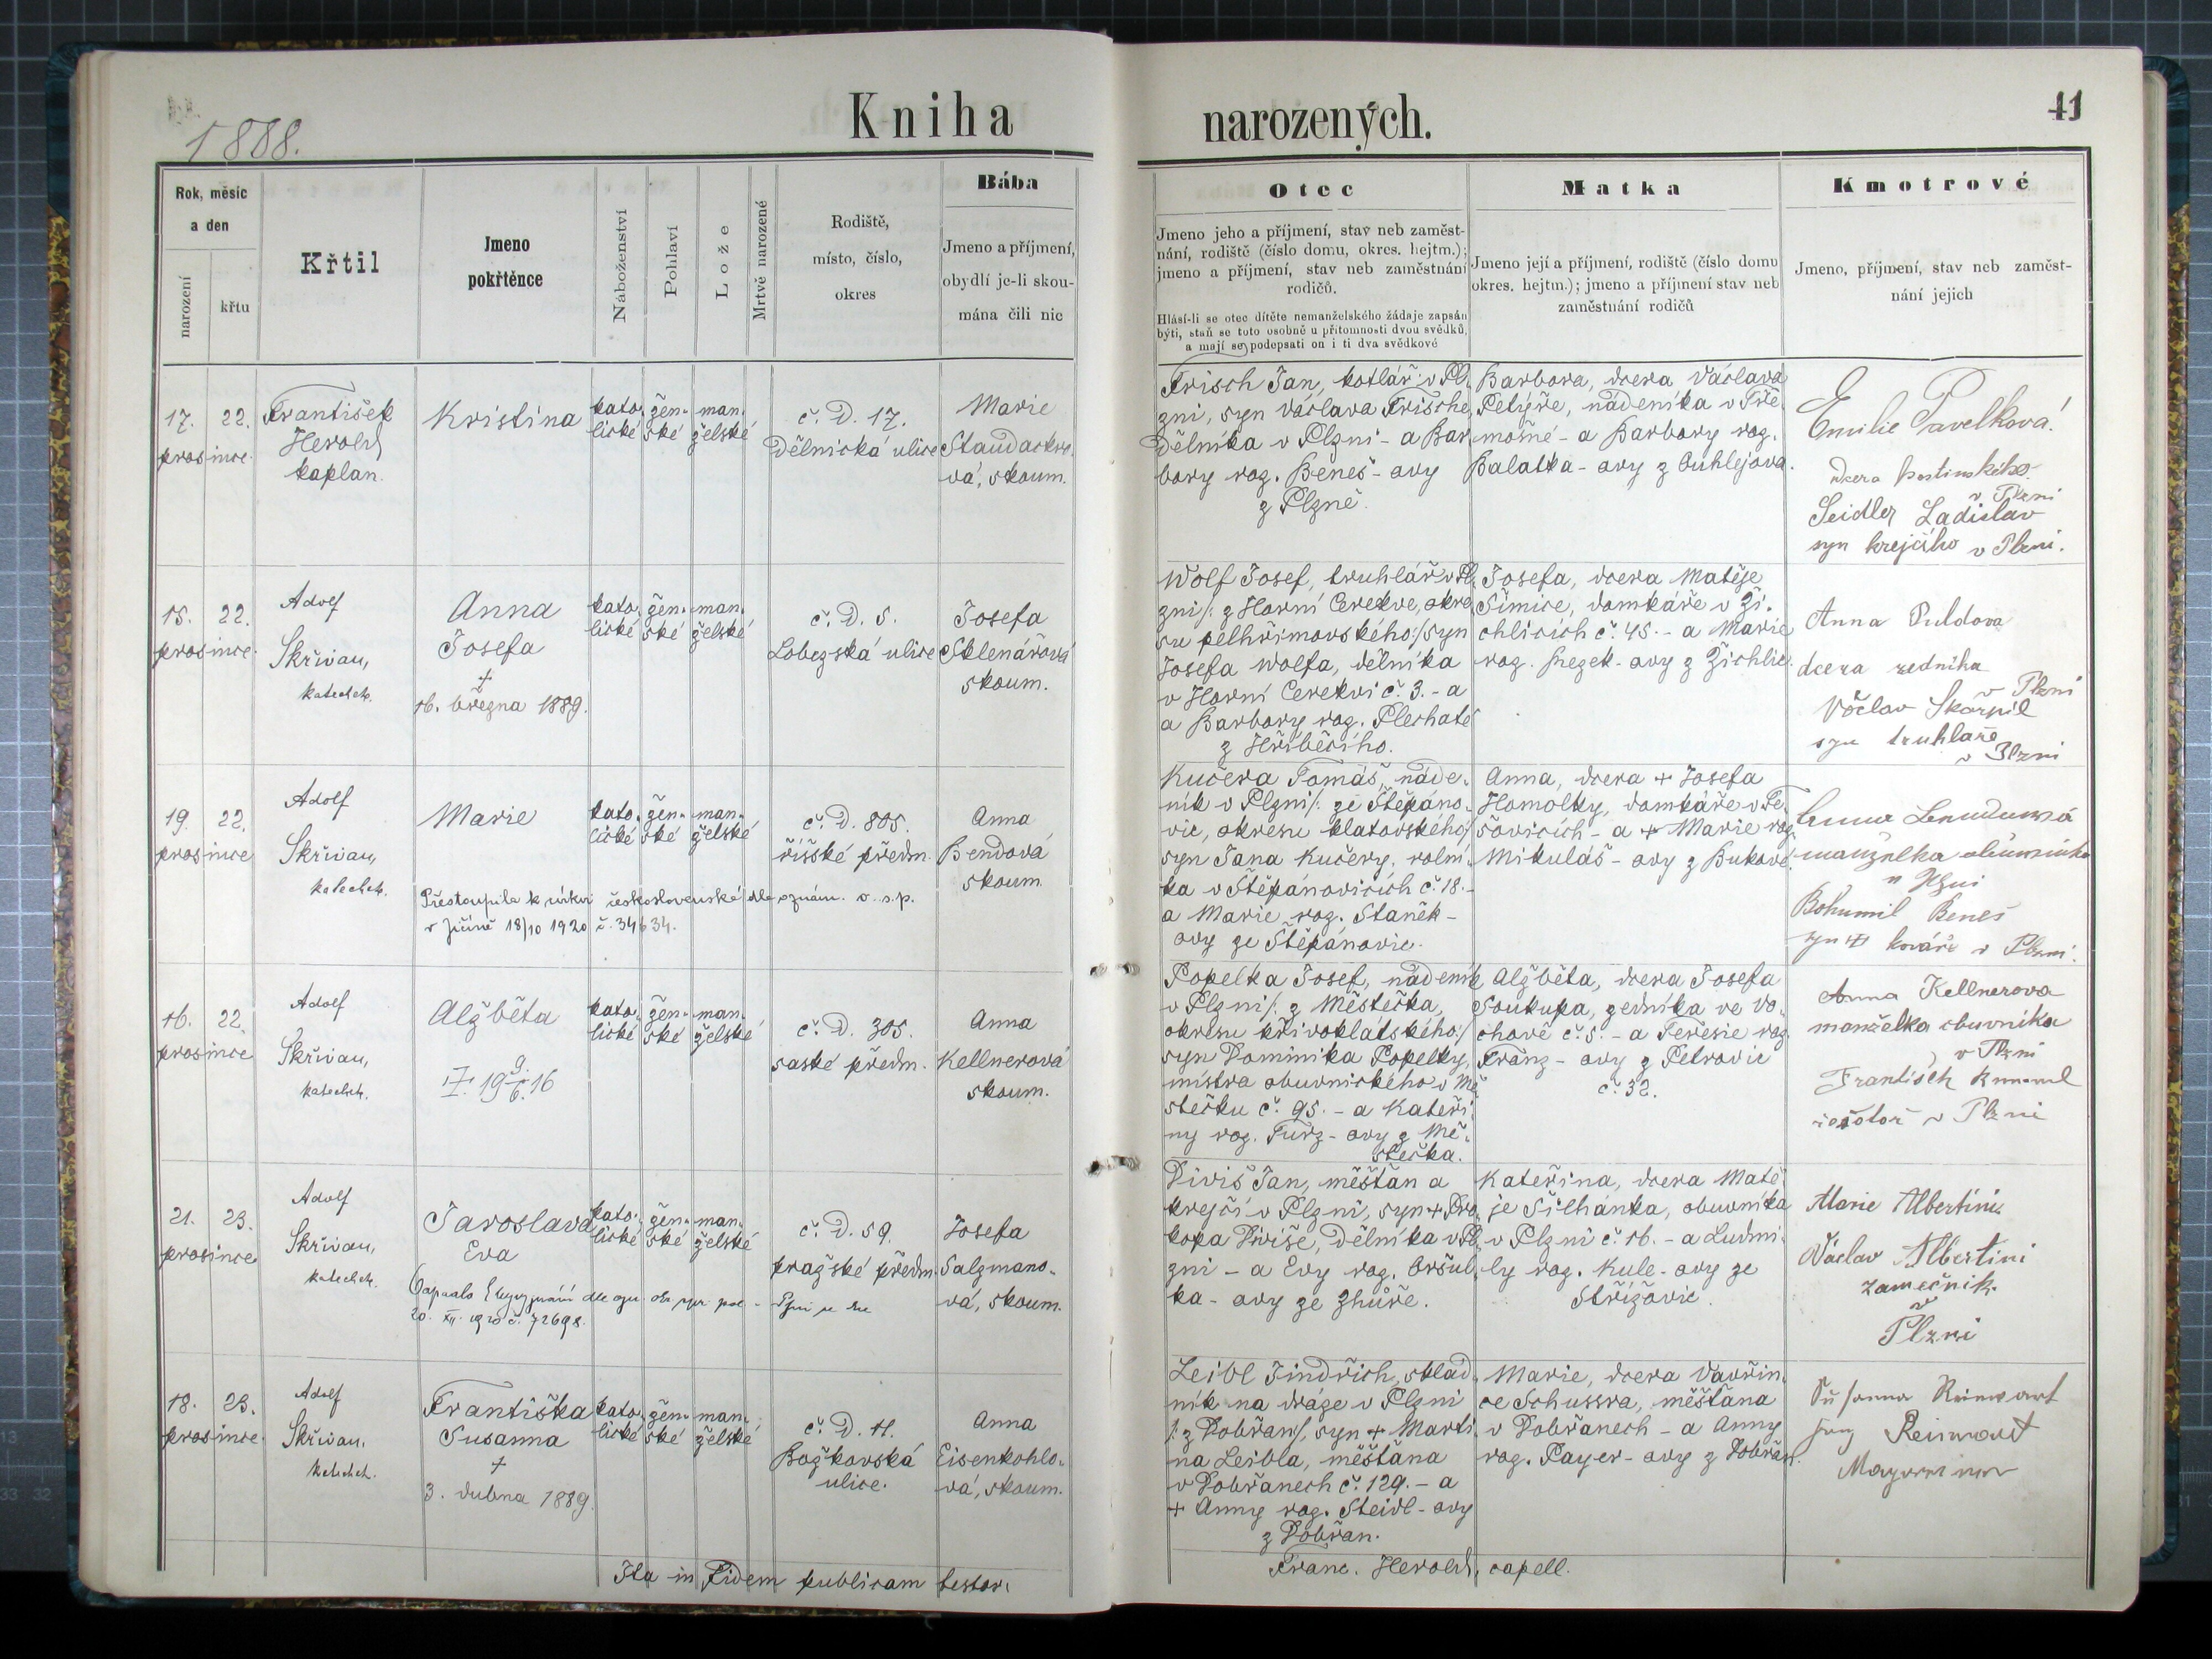 Kniha narozených.
41
1888.
Rok, měsíc
a den
narození
křtu
Křtil
Jmeno
pokřtěnce
Náboženství
Pohlaví
Lože
Mrtvě narozené
Rodiště,
místo, číslo,
okres
Bába
Jmeno a příjmení,
obydlí je-li skou-
mána čili nic
Otec
Jmeno jeho a příjmení, stav neb zaměst-
nání, rodiště (číslo domu, okres. hejtm.);
jmeno a příjmení, stav neb zaměstnání
rodičů.
Hlásí-li se otec dítěte nemanželského žádaje zapsán
býti, staň se toto osobně u přítomnosti dvou svědků,
a mají se podepsati on i ti dva svědkové
Matka
Jmeno její a příjmení, rodiště (číslo domu
okres. hejtm.); jmeno a příjmení stav neb
zaměstnání rodičů
Kmotrové
Jmeno, příjmení, stav neb zaměst-
nání jejich
17. 22.
prosince
František
Herold
kaplan.
Kristina
kato-
lické
žen-
ské
man-
želské
č. D. 17.
Dělnická ulice
Marie
vá, skoum.
Frisch Jan, kotlář v Pl-
zni, syn Václava Frische,
dělníka v Plzni - a Bar-
bory roz. Beneš-ovy
z Plzně.
Barbora, dcera Václava
nádeníka v Tře-
mošné - a Barbory roz.
Balatka-ovy z
Emilie Pavelková
dcera
v Plzni
Seidler Ladislav
syn krejčího v Plzni.
15. 22.
prosince
Adolf
Skřivan,
katechet.
Anna
Josefa
+
16. března 1889.
kato-
lické
žen-
ské
man-
želské
č. D. 5.
Lobezská ulice
Josefa
Sklenářová
skoum.
Wolf Josef, truhlář v Pl-
zni /: z Horní Cerekve, okre-
su pelhřimovského :/ syn
Josefa Wolfa, dělníka
v Horní Cerekvi č. 3. - a
a Barbory roz. Plechaté
z Hříběcího.
Josefa, dcera Matěje
Šimice, domkáře v Ži-
chlicích č. 45. - a Marie
roz. ovy z Žichlic.
Anna Puldova
dcera
v Plzni
Václav Škarpil
syn truhlaře
v Plzni
19. 22.
prosince
Adolf
Skřivan,
katechet.
Marie
kato-
lické
žen-
ské
man-
želské
č. D. 805.
říšské předm.
Anna
Bendová
skoum.
Přestoupila k církvi československé dle oznám. o. s. p.
v Jičíně 18/10 1920 č. 34634.
Kučera Tomáš, náde-
ník v Plzni /: ze Štěpáno-
vic, okresu klatovského :/
syn Jana Kučery, rolní-
ka v Štěpánovicích č. 18. -
a Marie roz. Staněk-
ovy ze Štěpánovic.
Anna, dcera + Josefa
Homolky, domkáře v Tě-
šovicích - a + Marie roz.
Mikuláš-ovy z Bukové.
manželka
v Plzni
Bohumil Beneš
syn + kováře v Plzni.
16. 22.
prosince
Adolf
Skřivan,
katechet.
Alžběta
kato-
lické
žen-
ské
man-
želské
č. D. 305.
saské předm.
Anna
Kellnerová
skoum.
Popelka Josef, nádeník
v Plzni /: z Městečka,
okresu křivoklátského :/
syn Dominika Popelky,
mistra obuvnického v Mě-
stečku č. 95. - a Kateři-
ny roz. Turz-ovy z Mě-
stečka.
Alžběta, dcera Josefa
Soukupa, zedníka ve Vo-
chově č. 5. - a Teresie roz.
Franz-ovy z Petrovic
č. 32.
Anna Kellnerova
manželka obuvníka
v Plzni
v Plzni
21. 23.
prosince
Adolf
Skřivan,
katechet.
Jaroslava
Eva
kato-
lické
žen-
ské
man-
želské
č. D. 59.
pražské předm.
Josefa
Salzmano-
vá, skoum.
20. XII. 1920 č. 72698.
Diviš Jan, měšťan a
krejčí v Plzni, syn + Pro-
kopa Diviše, dělníka v Pl-
zni - a Evy roz. Oršul-
ka-ovy ze Zhůře.
Kateřina, dcera Matě-
je Šilhánka, obuvníka
v Plzni č. 16. - a Ludmi-
ly roz. Kule-ovy ze
Střížovic.
Marie Albertini
Václav Albertini
zamečník
v
Plzni
18. 23.
prosince
Adolf
Skřivan,
katechet.
Františka
Susanna
+
3. dubna 1889.
kato-
lické
žen-
ské
man-
želské
č. D. 11.
Božkovská
ulice.
Anna
Eisenkohlo-
vá, skoum.
Leibl Jindřich, sklad-
ník na dráze v Plzni
/: z Dobřan :/, syn + Marti-
na Leibla, měšťana
v Dobřanech č. 129. - a
+ Anny roz. Steidl-ovy
z Dobřan.
Marie, dcera Vavřin-
ce Schussra, měšťana
v Dobřanech - a Anny
roz. Payer-ovy z Dobřan.
Ita in Fidem publicam testor:
Franc. Herold, capell.